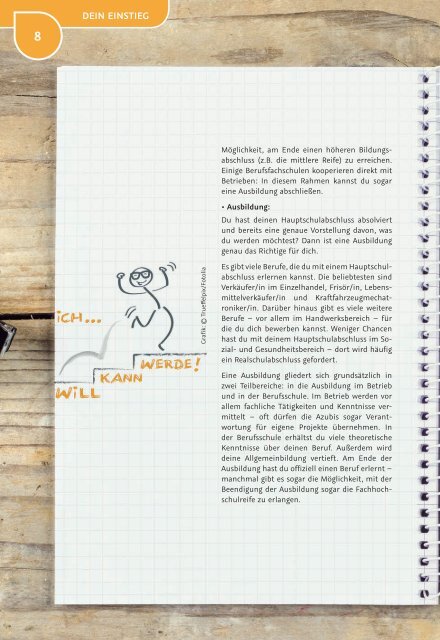 DEIN EINSTIEG
8
Möglichkeit, am Ende einen höheren Bildungs-
abschluss (z.B. die mittlere Reife) zu erreichen.
Einige Berufsfachschulen kooperieren direkt mit
Betrieben: In diesem Rahmen kannst du sogar
eine Ausbildung abschließen.
• Ausbildung:
Du hast deinen Hauptschulabschluss absolviert
und bereits eine genaue Vorstellung davon, was
du werden möchtest? Dann ist eine Ausbildung
genau das Richtige für dich.
Es gibt viele Berufe, die du mit einem Hauptschul-
abschluss erlernen kannst. Die beliebtesten sind
Verkäufer/in im Einzelhandel, Frisör/in, Lebens-
mittelverkäufer/in und Kraftfahrzeugmechat-
roniker/in. Darüber hinaus gibt es viele weitere
Berufe – vor allem im Handwerksbereich – für
die du dich bewerben kannst. Weniger Chancen
hast du mit deinem Hauptschulabschluss im So-
zial- und Gesundheitsbereich – dort wird häufig
ein Realschulabschluss gefordert.
Eine Ausbildung gliedert sich grundsätzlich in
zwei Teilbereiche: in die Ausbildung im Betrieb
und in der Berufsschule. Im Betrieb werden vor
allem fachliche Tätigkeiten und Kenntnisse ver-
mittelt – oft dürfen die Azubis sogar Verant-
wortung für eigene Projekte übernehmen. In
der Berufsschule erhältst du viele theoretische
Kenntnisse über deinen Beruf. Außerdem wird
deine Allgemeinbildung vertieft. Am Ende der
Ausbildung hast du offiziell einen Beruf erlernt –
manchmal gibt es sogar die Möglichkeit, mit der
Beendigung der Ausbildung sogar die Fachhoch-
schulreife zu erlangen.
iCH...
WERDE!
KANN
WiLL
Grafik: © Trueffelpix/Fotolia